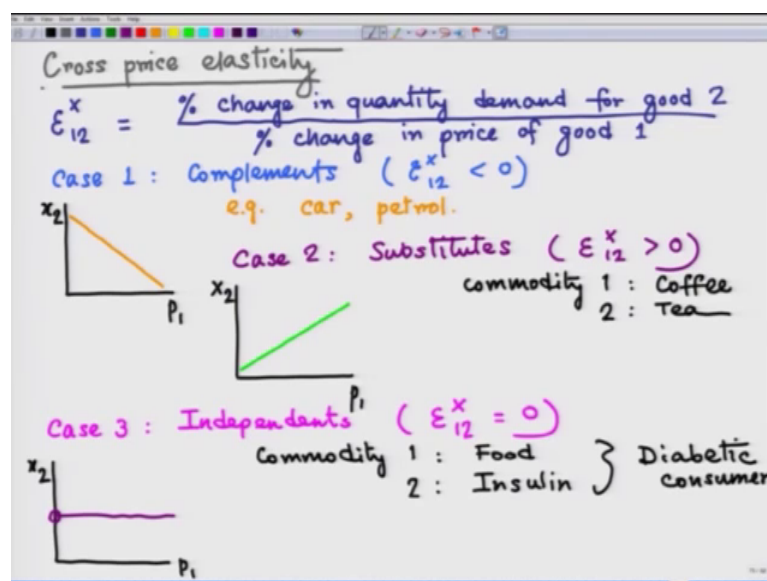 Cross price elasticity
ε₁₂ˣ = % change in quantity demand for good 2
% change in price of good 1
Case 1 : Complements ( ε₁₂ˣ < 0 )
e.g. car, petrol.
x₂
P₁
Case 2 : Substitutes ( ε₁₂ˣ > 0 )
commodity 1 : Coffee
2 : Tea
x₂
P₁
Case 3 : Independents ( ε₁₂ˣ = 0 )
Commodity 1 : Food } Diabetic
2 : Insulin consumer
x₂
P₁